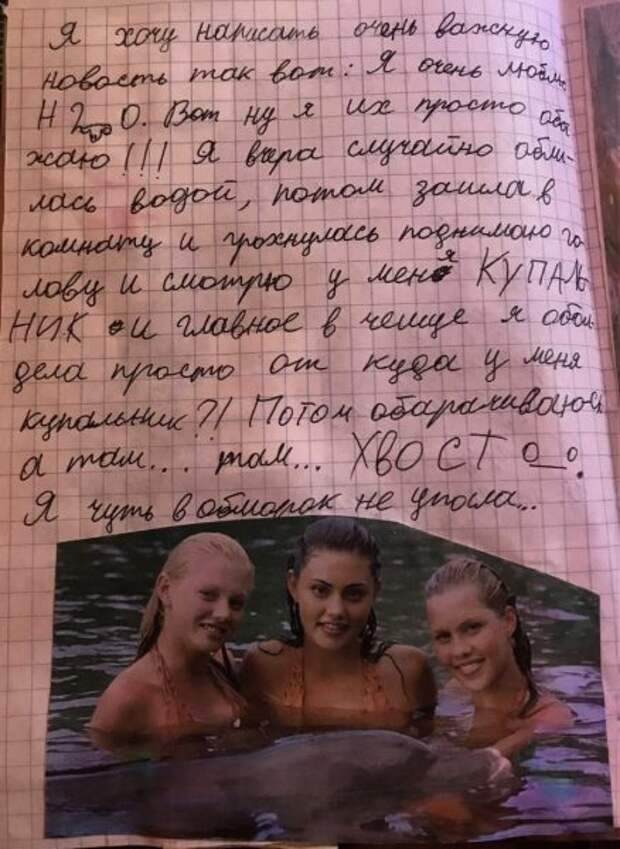 Я хочу написать очень важную
новость так вот: Я очень люблю
H2O. Вот ну я их просто оба
жаю!!! Я вчера случайно обли-
лась водой, потом зашла в
комнату и грохнулась поднимаю го
лову и смотрю у меня КУПАЛЬ
НИК и главное в чешуе я обал
дела просто от куда у меня
купальник?! Потом обарачиваюсь
а там... там... ХВОСТ О_о.
Я чуть в обморок не упала...